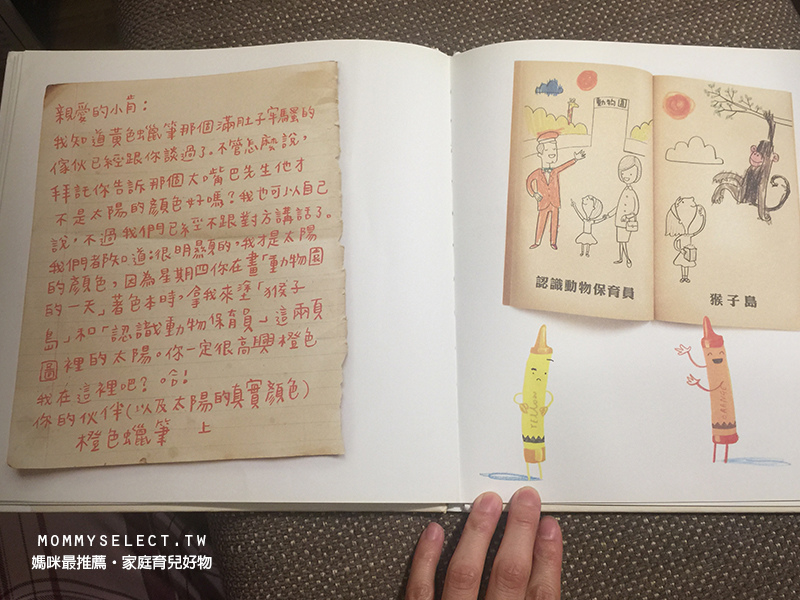 親愛的小肯：
我知道黃色蠟筆那個滿肚子牢騷的
傢伙已經跟你談過了。不管怎麼說，
拜託你告訴那個大嘴巴先生他才
不是太陽的顏色好嗎？我也可以自己
說，不過我們已經不跟對方講話了。
我們都知道：很明顯的，我才是太陽
的顏色，因為星期四你在畫「動物園
的一天」著色本時，拿我來塗「猴子
島」和「認識動物保育員」這兩頁
圖裡的太陽。你一定很高興橙色
我在這裡吧？哈！
你的伙伴（以及太陽的真實顏色）
橙色蠟筆 上
動物園
認識動物保育員
猴子島
YELLOW
ORANGE
MOMMYSELECT.TW
媽咪最推薦・家庭育兒好物